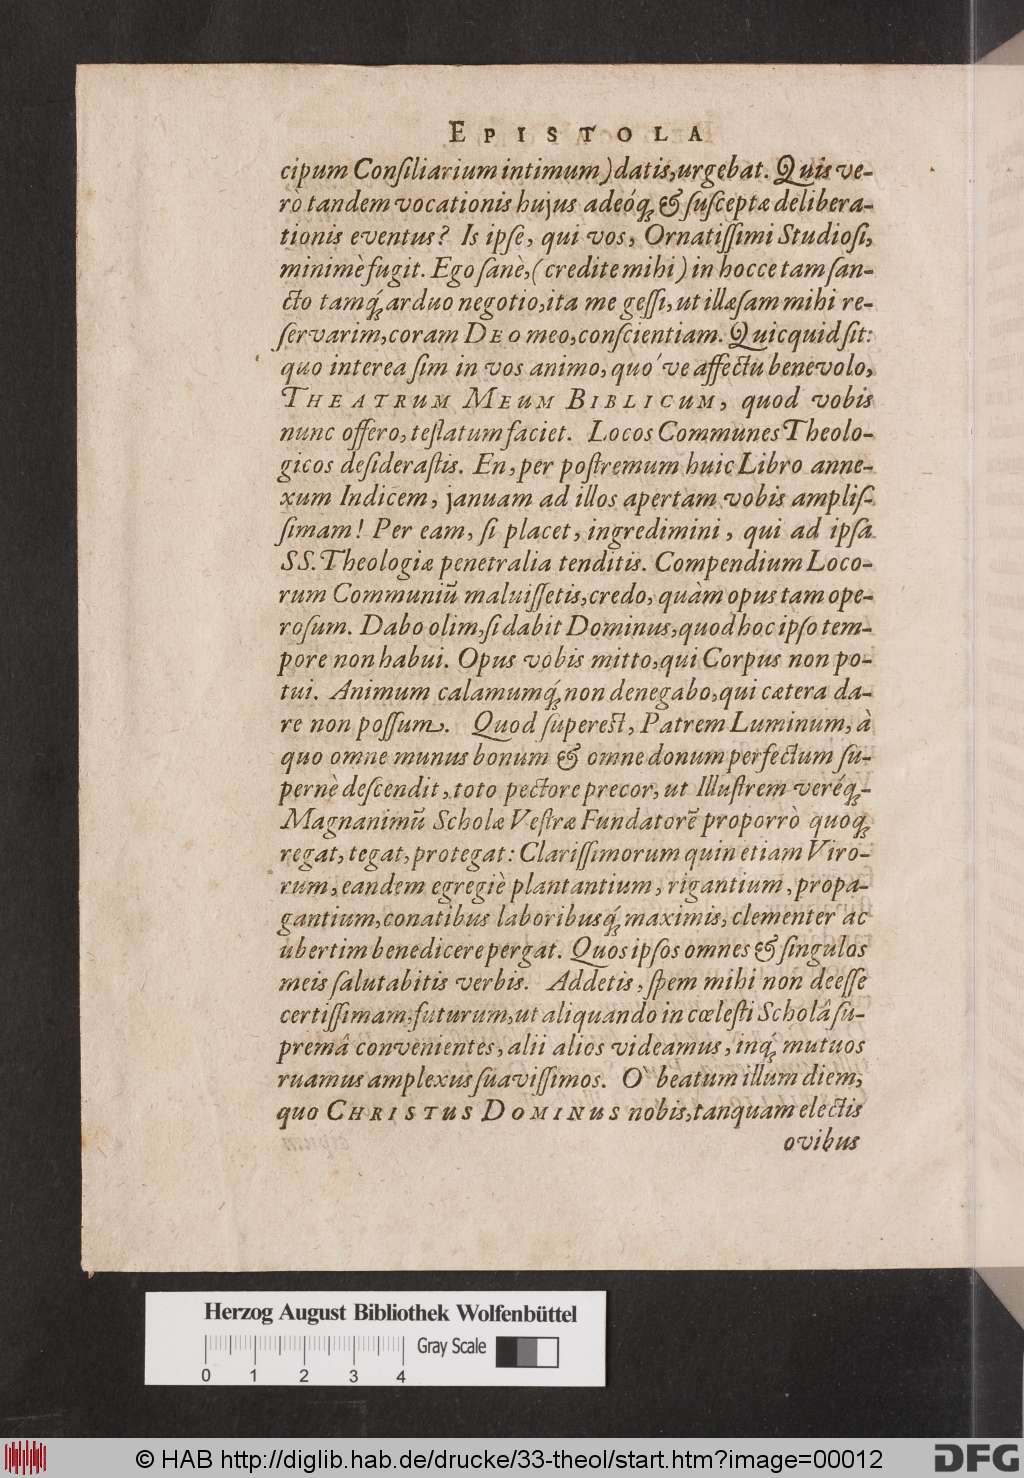 EPISTOLA
cipum Conſiliarium intimum) datis, urgebat. Quis ve-
rò tandem vocationis hujus adeóq́ꝫ & ſuſceptæ delibera-
tionis eventus? Is ipſe, qui vos, Ornatiſſimi Studioſi,
minimè fugit. Ego ſanè, (credite mihi) in hocce tam ſan-
cto tamq́ꝫ arduo negotio, ita me geſſi, ut illæſam mihi re-
ſervarim, coram DEO meo, conſcientiam. Quicquid ſit:
quo interea ſim in vos animo, quo've affectu benevolo,
THEATRUM MEUM BIBLICUM, quod vobis
nunc offero, teſtatum faciet. Locos Communes Theolo-
gicos deſideraſtis. En, per poſtremum huic Libro anne-
xum Indicem, januam ad illos apertam vobis ampliſ-
ſimam! Per eam, ſi placet, ingredimini, qui ad ipſa
SS. Theologiæ penetralia tenditis. Compendium Loco-
rum Communiũ maluiſſetis, credo, quàm opus tam ope-
roſum. Dabo olim, ſi dabit Dominus, quod hoc ipſo tem-
pore non habui. Opus vobis mitto, qui Corpus non po-
tui. Animum calamumq́ꝫ non denegabo, qui cætera da-
re non poſſum. Quod ſupereſt, Patrem Luminum, à
quo omne munus bonum & omne donum perfectum ſu-
pernè deſcendit, toto pectore precor, ut Illuſtrem veréq́ꝫ-
Magnanimũ Scholæ Veſtræ Fundatorẽ proporrò quoqꝫ
regat, tegat, protegat: Clariſſimorum quin etiam Viro-
rum, eandem egregiè plantantium, rigantium, propa-
gantium, conatibus laboribusq́ꝫ maximis, clementer ac
ubertim benedicere pergat. Quos ipſos omnes & ſingulos
meis ſalutabitis verbis. Addetis, ſpem mihi non deeſſe
certiſſimam, futurum, ut aliquando in cœleſti Scholâ ſu-
premâ convenientes, alii alios videamus, inq́ꝫ mutuos
ruamus amplexus ſuaviſſimos. O` beatum illum diem,
quo CHRISTUS DOMINUS nobis, tanquam electis
ovibus
Herzog August Bibliothek Wolfenbüttel
Gray Scale
0 1 2 3 4
© HAB http://diglib.hab.de/drucke/33-theol/start.htm?image=00012
DFG